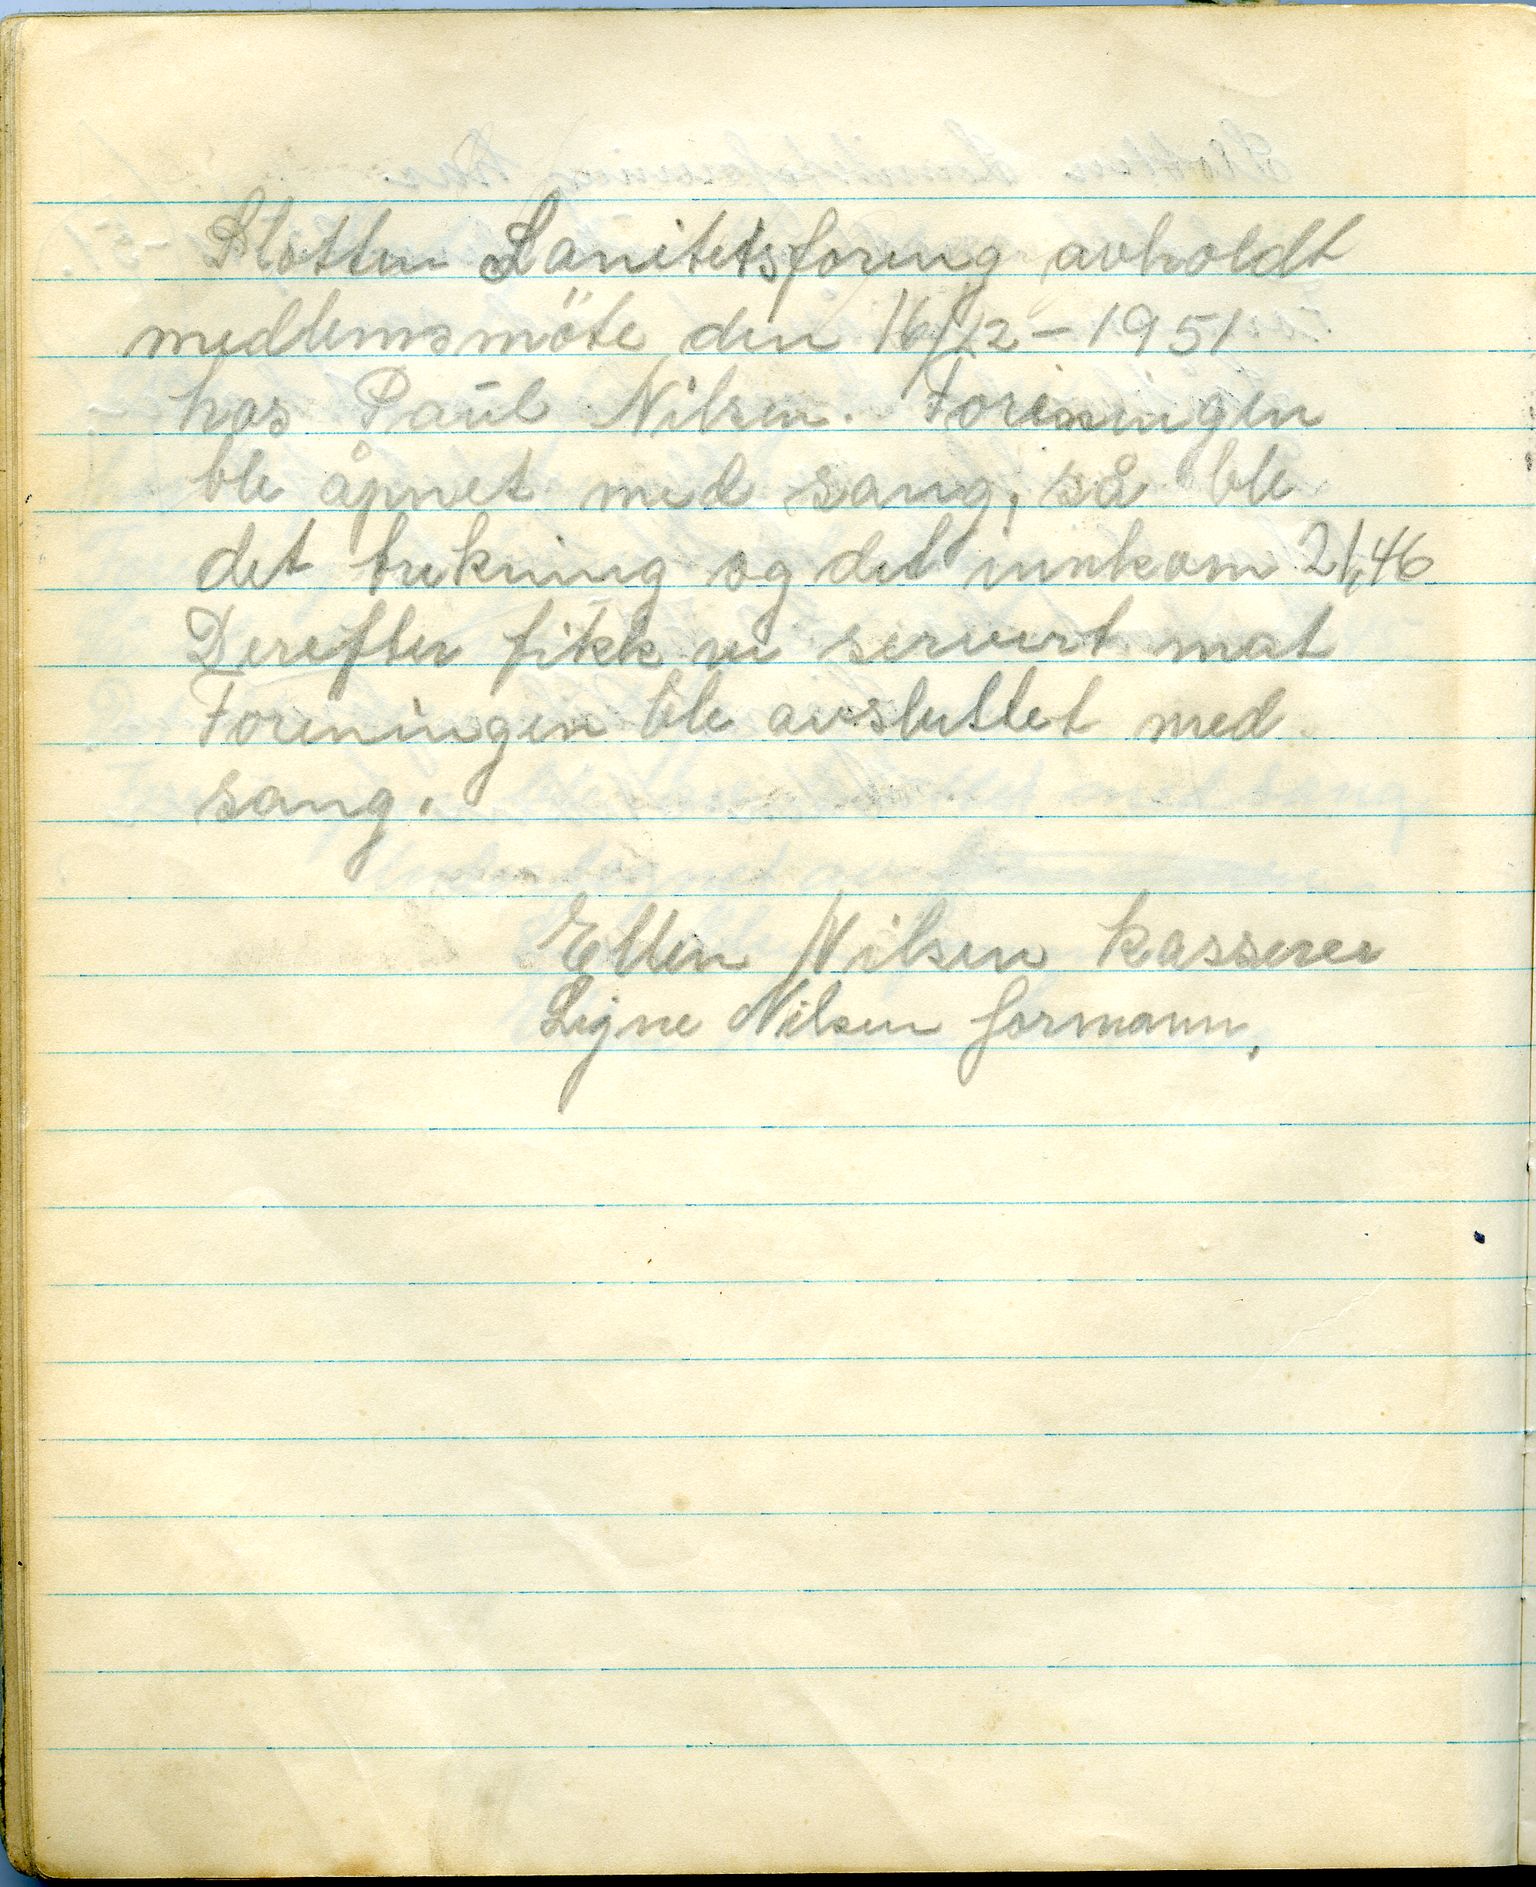 Slotten Sanitetsforing avholdt
medlemsmöte den 16/12-1951
hos Paul Nilsen. Foreningen
ble åpnet med sang, så ble
det trekning og det innkom 21,46
Derefter fikk vi servert mat
Foreningen ble avsluttet med
sang.
Ellen Nilsen kasserer
Signe Nilsen formann.